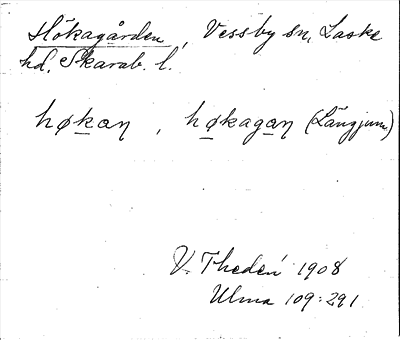 Hökagården, Vessby sn, Laske
hd, Skarab. l.
høkaŋ, høkagaŋ (Längjum)
V. Thedén 1908
Ulma 109:291